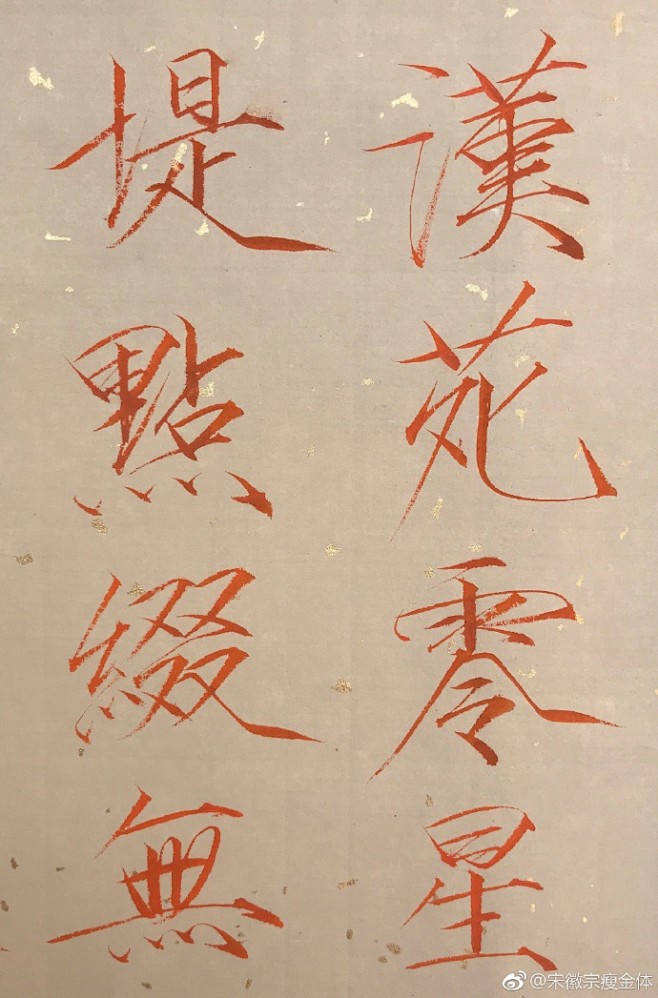 漢苑零星
堤點綴無
@宋徽宗瘦金体